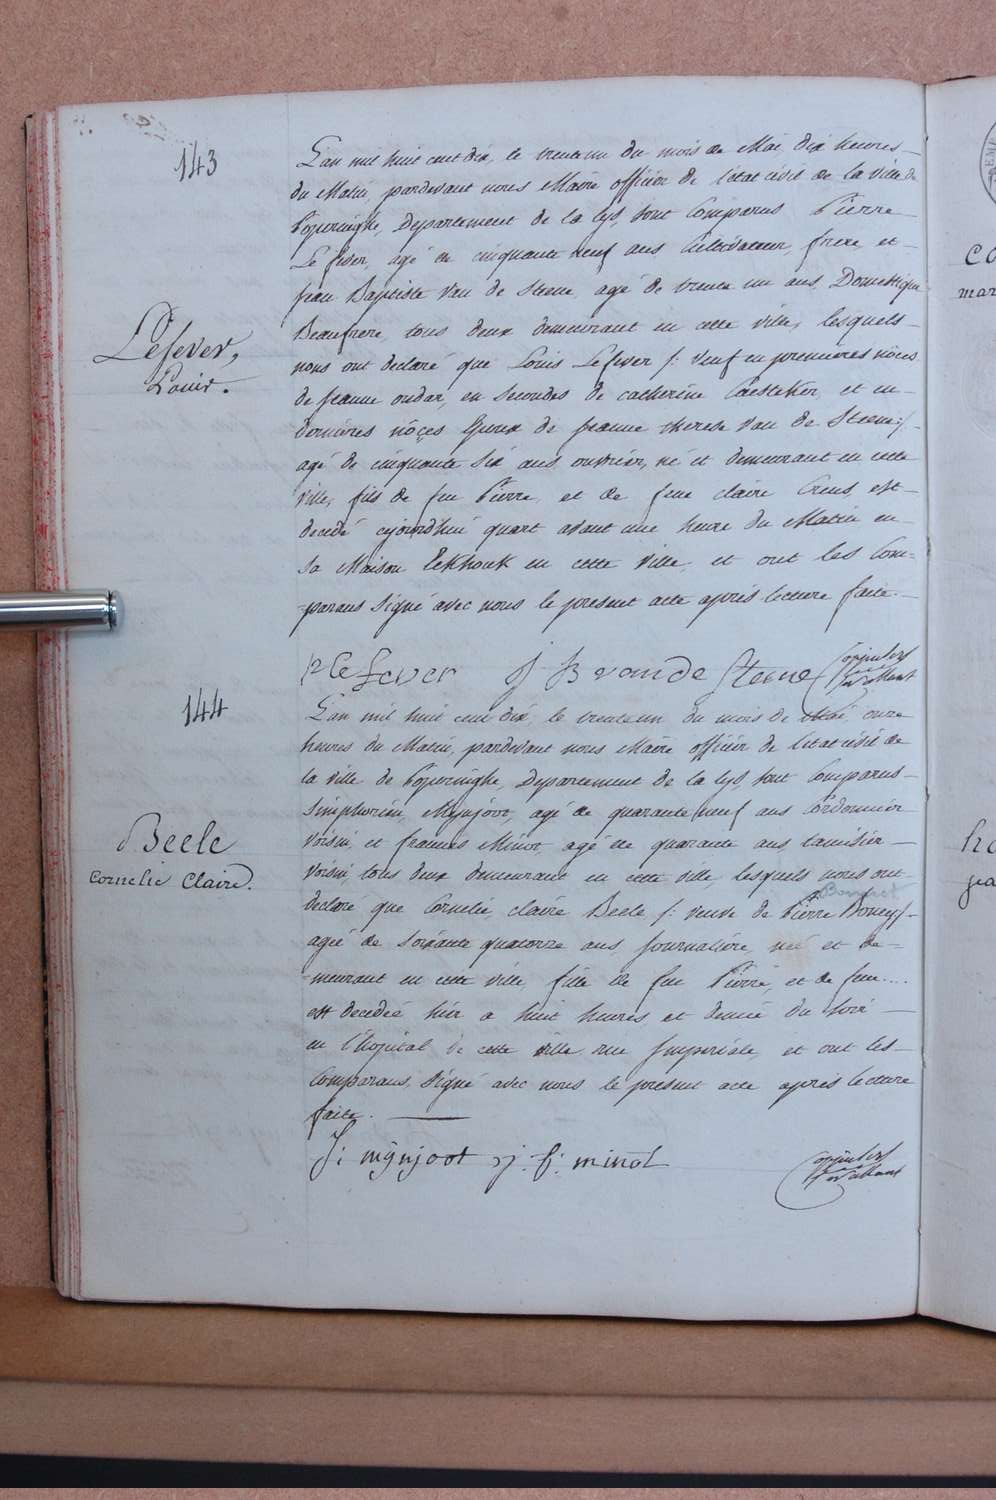 143
L'an mil huit cent dix, le trente un du mois de Mai, dix heures
du Matin, pardevant nous Maire officier de l'état civil de la ville de
Poperinghe, Département de la Lys, sont Comparus Pierre
Le fever, agé de cinquante neuf ans Cultivateur, frere, et
jean Baptiste Van de Steene, agé de trente un ans, Domestique
Lefever,
Louis.
Beaufrere, tous deux demeurant en cette ville, lesquels
nous ont declaré que Louis Lefever /: Veuf en premieres nôces
de jeanne oudar, en secondes de catherine Caesteker, et en
dernieres nôçes Epoux de jeanne therese Van de Steene:/
agé de cinquante six ans, ouvrier, né et demeurant en cette
ville, fils de feu Pierre, et de feue claire Creus, est
decedé cejourdhui quart avant une heure du Matin en
sa Maison Eekhouk en cette ville, et ont les Com=
=parans signé avec nous le present acte après lecture faite.
p le fever j B van de Steene
144
L'an mil huit cent dix, le trente un du mois de Mai, onze
heures du Matin, pardevant nous Maire officier de l'état civil de
la ville de Poperinghe, Département de la Lys, sont Comparus
Simphorien Mynjoot, agé de quarante neuf ans Cordonnier
Beele
Cornelie Claire.
Voisin, et francois Minot, agé de quarante ans tamisier
Voisin, tous deux demeurant en cette ville, lesquels nous ont
declaré que Cornelie claire Beele /: veuve de Pierre Boney:/
ageé de soixante quatorze ans, journaliere, neé et de=
=meurant en cette ville, fille de feu Pierre, et de feu....
est decedée hier a huit heures et demie du soir
en l'hopital de cette ville rue Imperiale, et ont les
Comparans signé avec nous le present acte après lecture
faite.
S: mynjoot j: f: minot